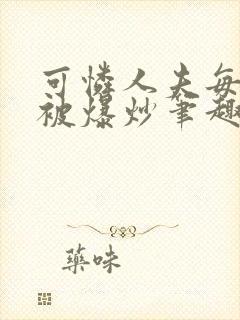 可憐人夫每
被爆炒筆趣
藥味